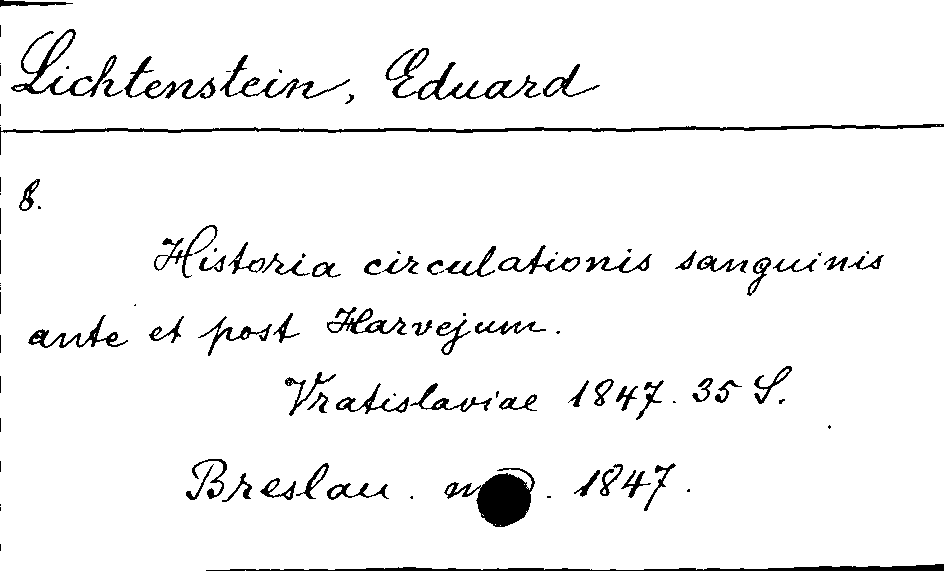 Lichtenstein, Eduard
8.
Historia circulationis sanguinis
ante et post Harvejum.
Vratislaviae 1847. 35 S.
Breslau. 1847.